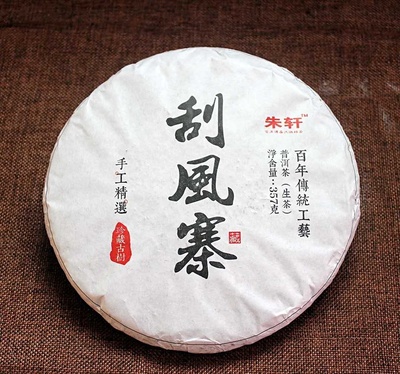 朱轩™
百年傳統工藝
普洱茶（生茶）
淨含量：357克
刮風寨
藏
手工精選
珍藏古樹